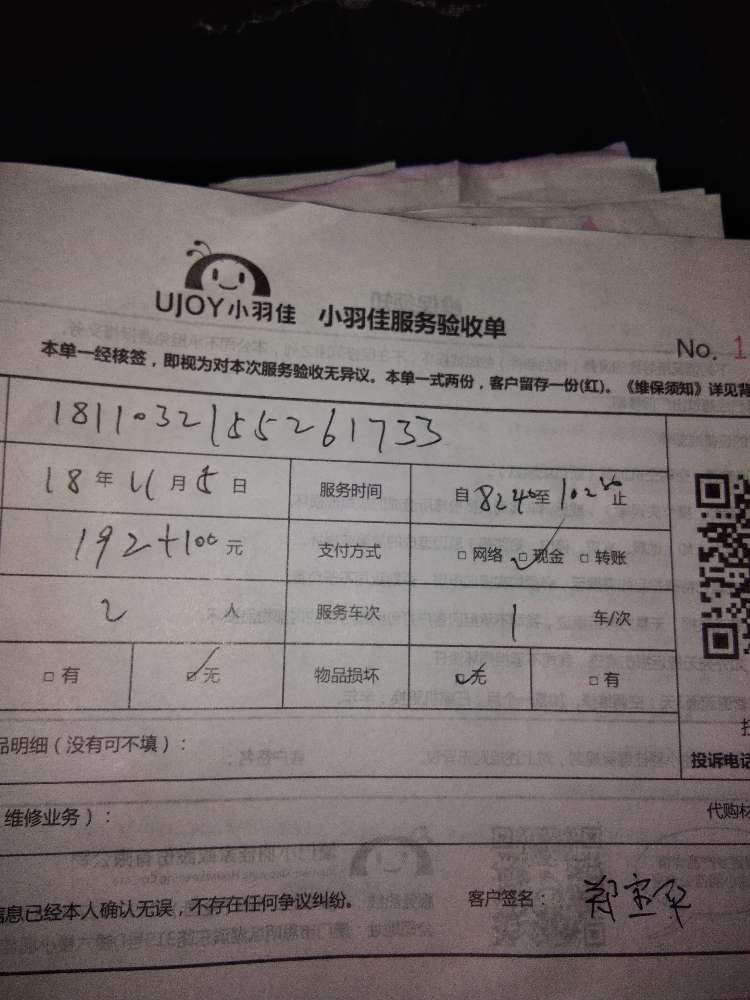 UJOY小羽佳 小羽佳服务验收单
No. 1
本单一经核签，即视为对本次服务验收无异议。本单一式两份，客户留存一份(红)。《维保须知》详见背
1811032155261733
18年11月5日 服务时间 自824⁰至10200止
192+100元 支付方式 □网络 □现金 □转账
2人 服务车次 1 车/次
□有 □无 物品损坏 □无 □有
品明细（没有可不填）：
投诉电话
维修业务）：
代购材
信息已经本人确认无误，不存在任何争议纠纷。 客户签名：郑宝平